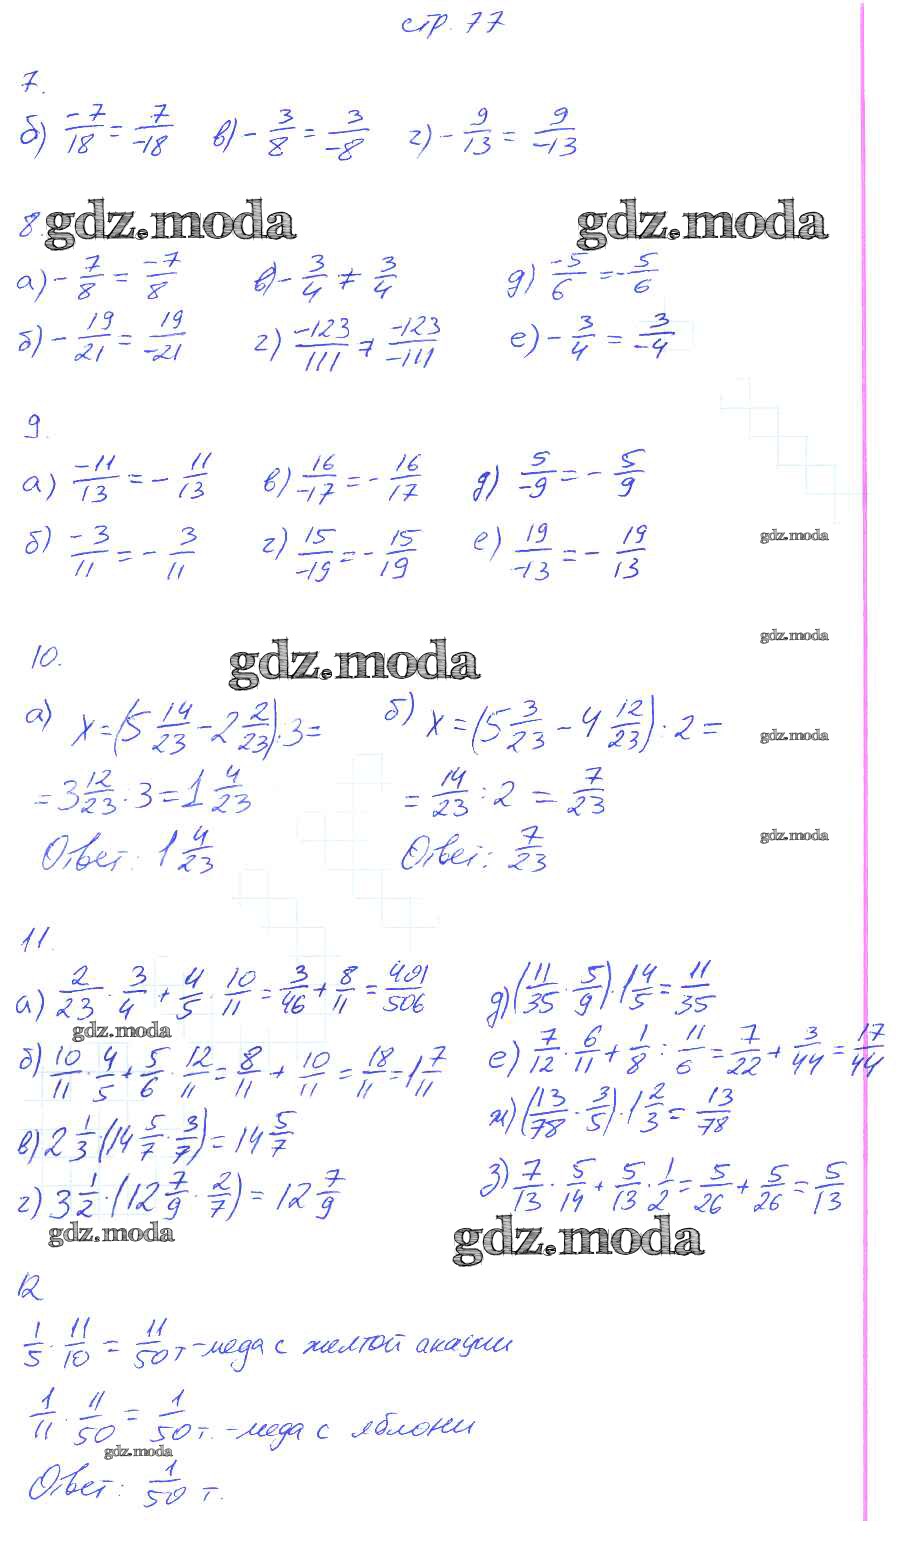 стр. 77
7.
б) -7/18 = 7/-18 в) - 3/8 = 3/-8 г) - 9/13 = 9/-13
8. gdz.moda gdz.moda
а) - 7/8 = -7/8 в) - 3/4 ≠ 3/4 д) -5/6 = - 5/6
б) - 19/21 = 19/-21 г) -123/111 ≠ -123/-111 е) - 3/4 = 3/-4
9.
а) -11/13 = - 11/13 в) 16/-17 = - 16/17 д) 5/-9 = - 5/9
б) -3/11 = - 3/11 г) 15/-19 = - 15/19 е) 19/-13 = - 19/13
gdz.moda
gdz.moda
10. gdz.moda
а) x = (5 14/23 - 2 2/23) : 3 = б) x = (5 3/23 - 4 12/23) : 2 =
gdz.moda
= 3 12/23 : 3 = 1 4/23 = 14/23 : 2 = 7/23
Ответ: 1 4/23 Ответ: 7/23
gdz.moda
11.
а) 2/23 · 3/4 + 4/5 · 10/11 = 3/46 + 8/11 = 401/506 д) (11/35 · 5/9) · 1 4/5 = 11/35
gdz.moda
б) 10/11 · 4/5 + 5/6 · 12/11 = 8/11 + 10/11 = 18/11 = 1 7/11 е) 7/12 · 6/11 + 1/8 : 11/6 = 7/22 + 3/44 = 17/44
в) 2 1/3 · (14 5/7 · 3/7) = 14 5/7 ж) (13/78 · 3/5) · 1 2/3 = 13/78
г) 3 1/2 · (12 7/9 · 2/7) = 12 7/9 з) 7/13 · 5/14 + 5/13 · 1/2 = 5/26 + 5/26 = 5/13
gdz.moda gdz.moda
12
1/5 · 11/10 = 11/50 т - меда с желтой акации
1/11 · 11/50 = 1/50 т. - меда с яблони
gdz.moda
Ответ: 1/50 т.